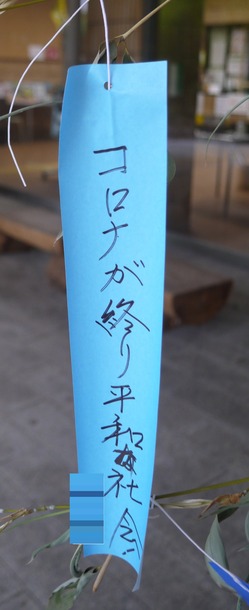 コロナが終り平和な社会に